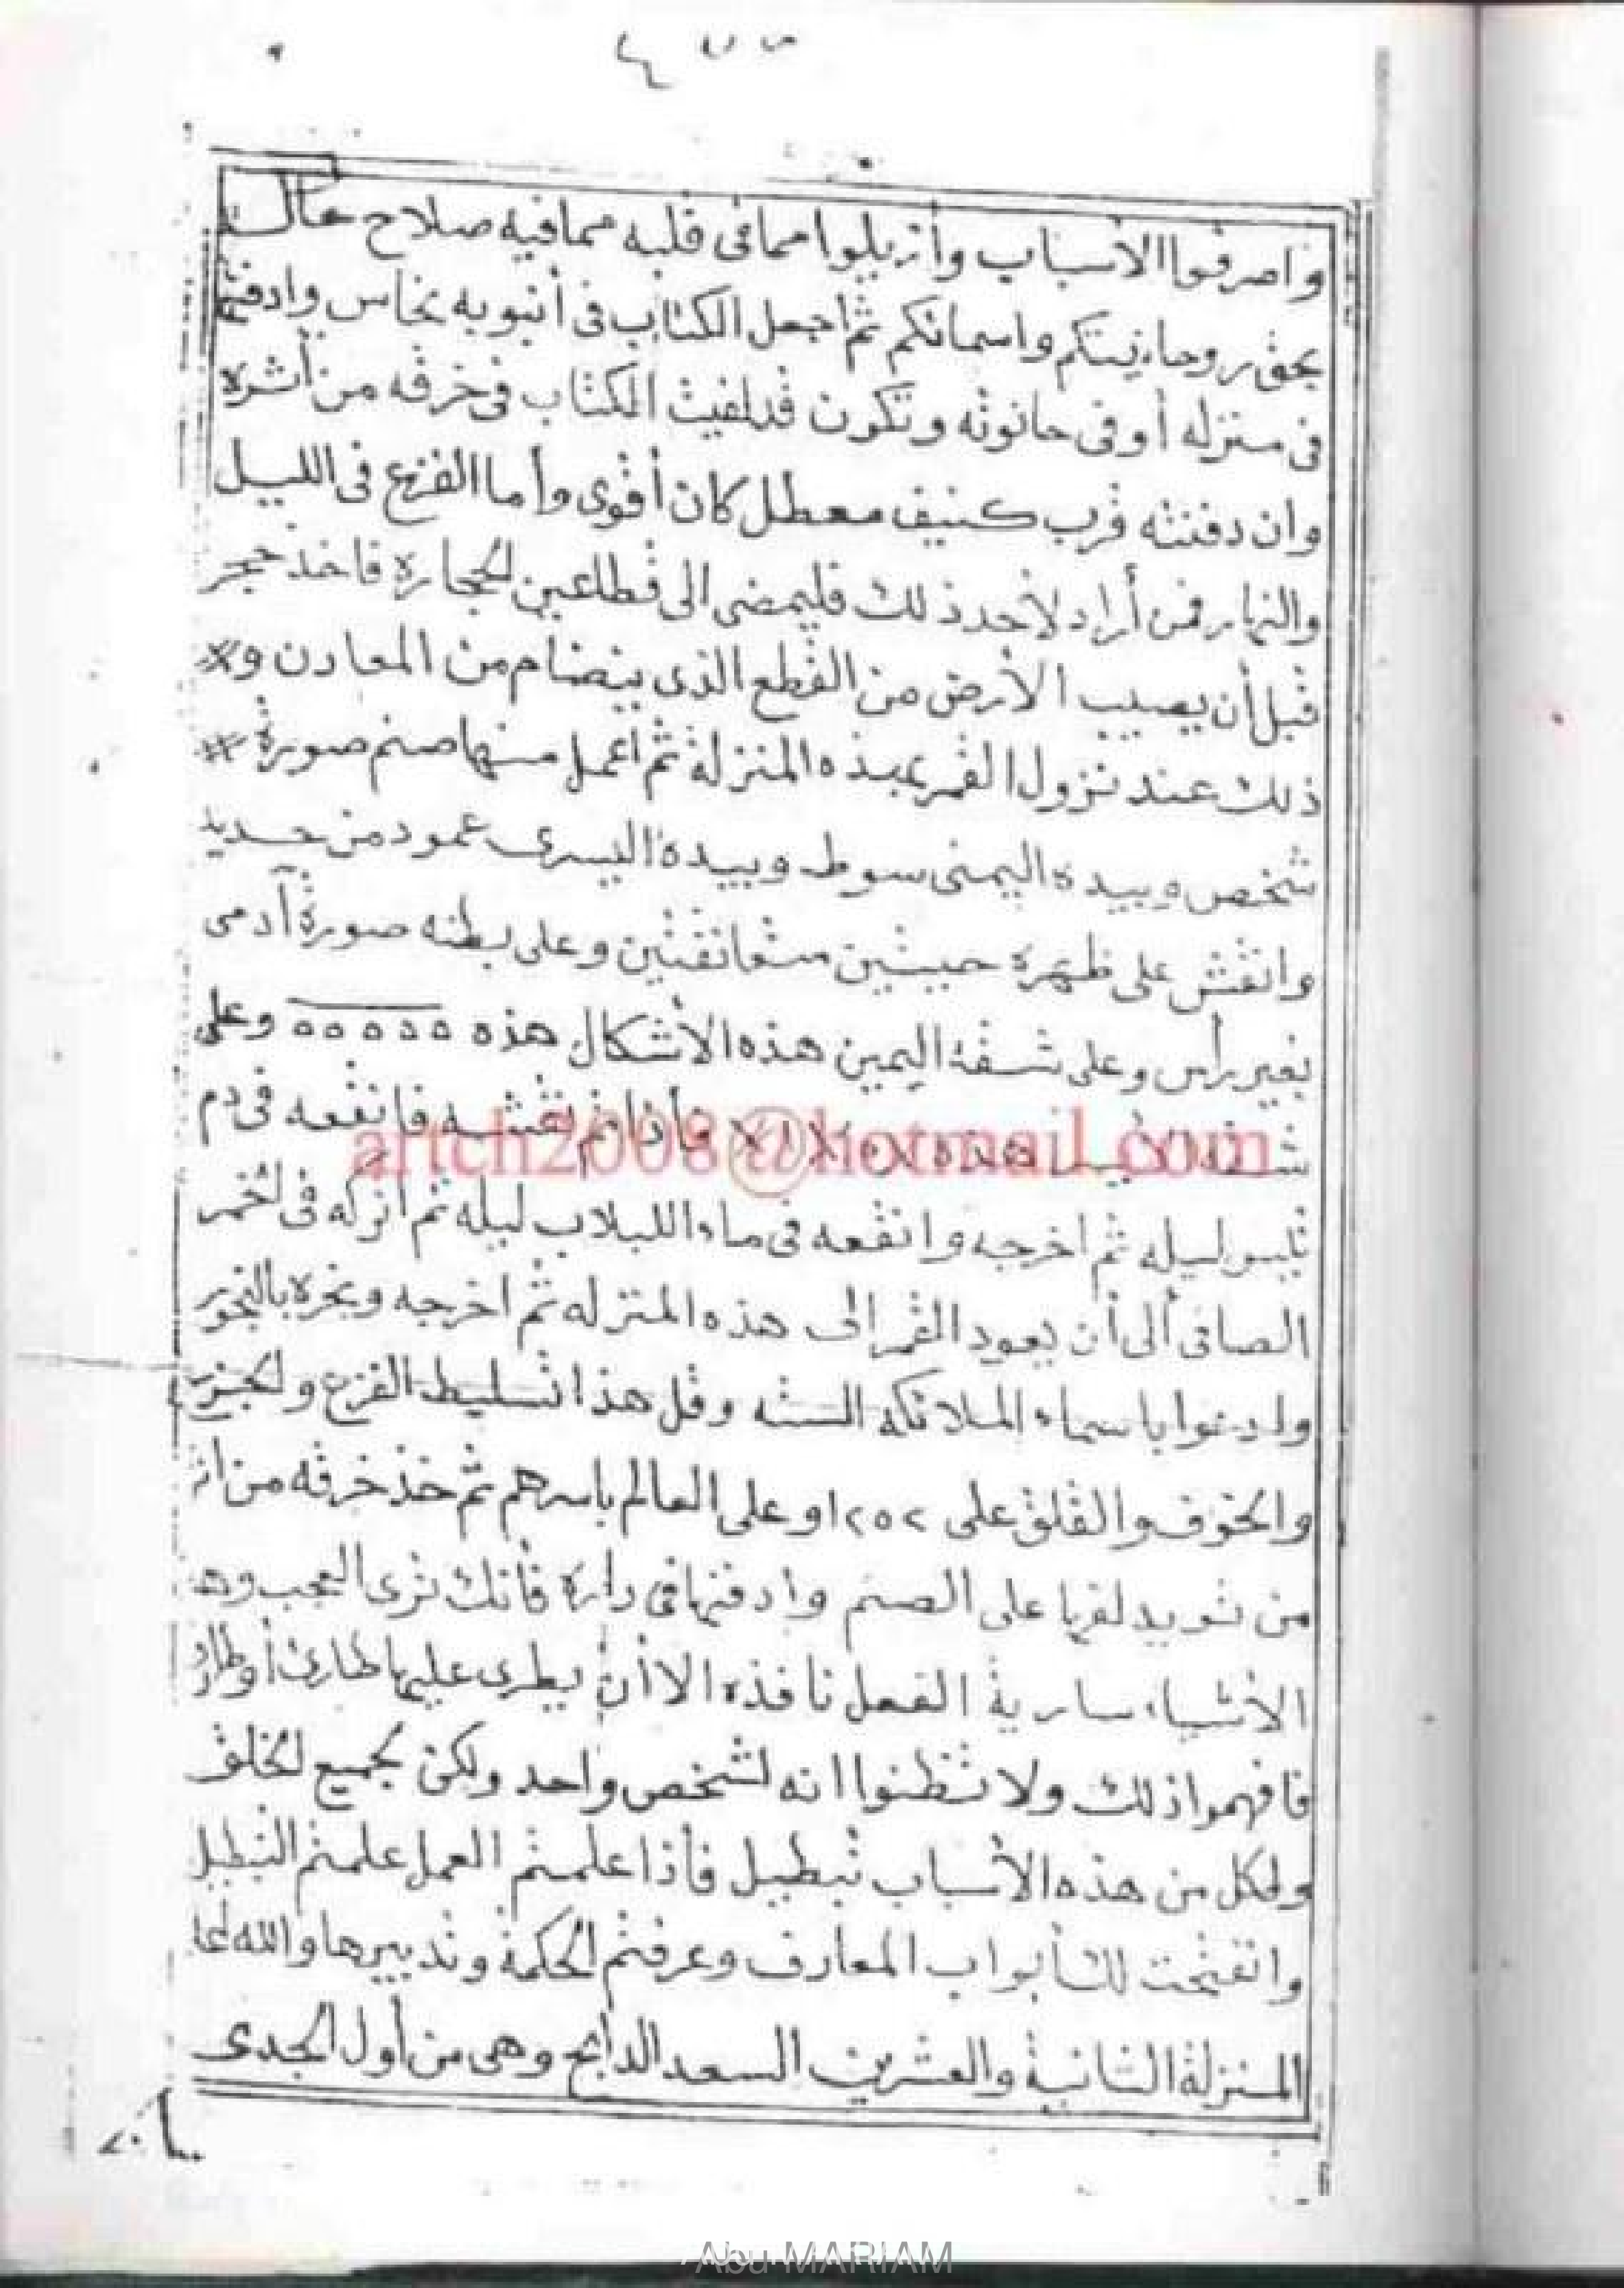 واصرفوا الأسباب وأزيلوا مما فى قلبه مما فيه صلاح حاله
بحق روحانيتكم واسمائكم ثم اجعل الكتاب فى أنبوبه نحاس وادفنها
فى منزله أو فى حانوته وتكون قد لفيت الكتاب فى خرقه من أثره
وان دفنته قرب كنيف معطل كان أقوى وأما الفزع فى الليل
والنهار فمن أراد لأحد ذلك فليمضى الى قطاعين الحجارة فاخذ حجر
قبل أن يصيب الأرض من القطع الذى من المعادن و
ذلك عند نزول القمر بهذه المنزلة ثم اعمل منها صنم صورة
شخص وبيده اليمنى سوط وبيده اليسرى عمود من حديد
وانقش على ظهره حيتين متعانقتين وعلى بطنه صورة آدمى
بغير رأس وعلى شقة اليمين هذه الأشكال هذه ٥ ٥ ٥ ٥ ٥ وعلى
فأذا تم نقشه فانقعه فى دم
تيس ليله ثم اخرجه وانقعه فى ماء اللبلاب ليله ثم اتركه فى الخمر
الصافى ألى أن يعود القمر إلى هذه المنزله ثم اخرجه وبخره بالبخور
وادعوا باسماء الملائكه السته وقل هذا تسليط الفزع والجزع
والخوف والقلق على ١٢٥٢ و على العالم باسرهم ثم خذ خرقه من اثر
من تريد لفها على الصنم وادفنها فى داره فأنك ترى العجب وهذ
الأشياء سارية الفعل نافذه الا أن يطرى عليها طارئ أو طار
فافهموا ذلك ولا تظنوا انه لشخص واحد ولكن لجميع الخلق
ولكل من هذه الأسباب تبطيل فأذا علمتم العمل علمتم التبطيل
وانفتحت لك أبواب المعارف وعرفتم الحكمة وتدبيرها والله
المنزلة الثانية والعشرين السعد الدابح وهى من أول الجدى
artch2008@hotmail.com
Abu MARIAM